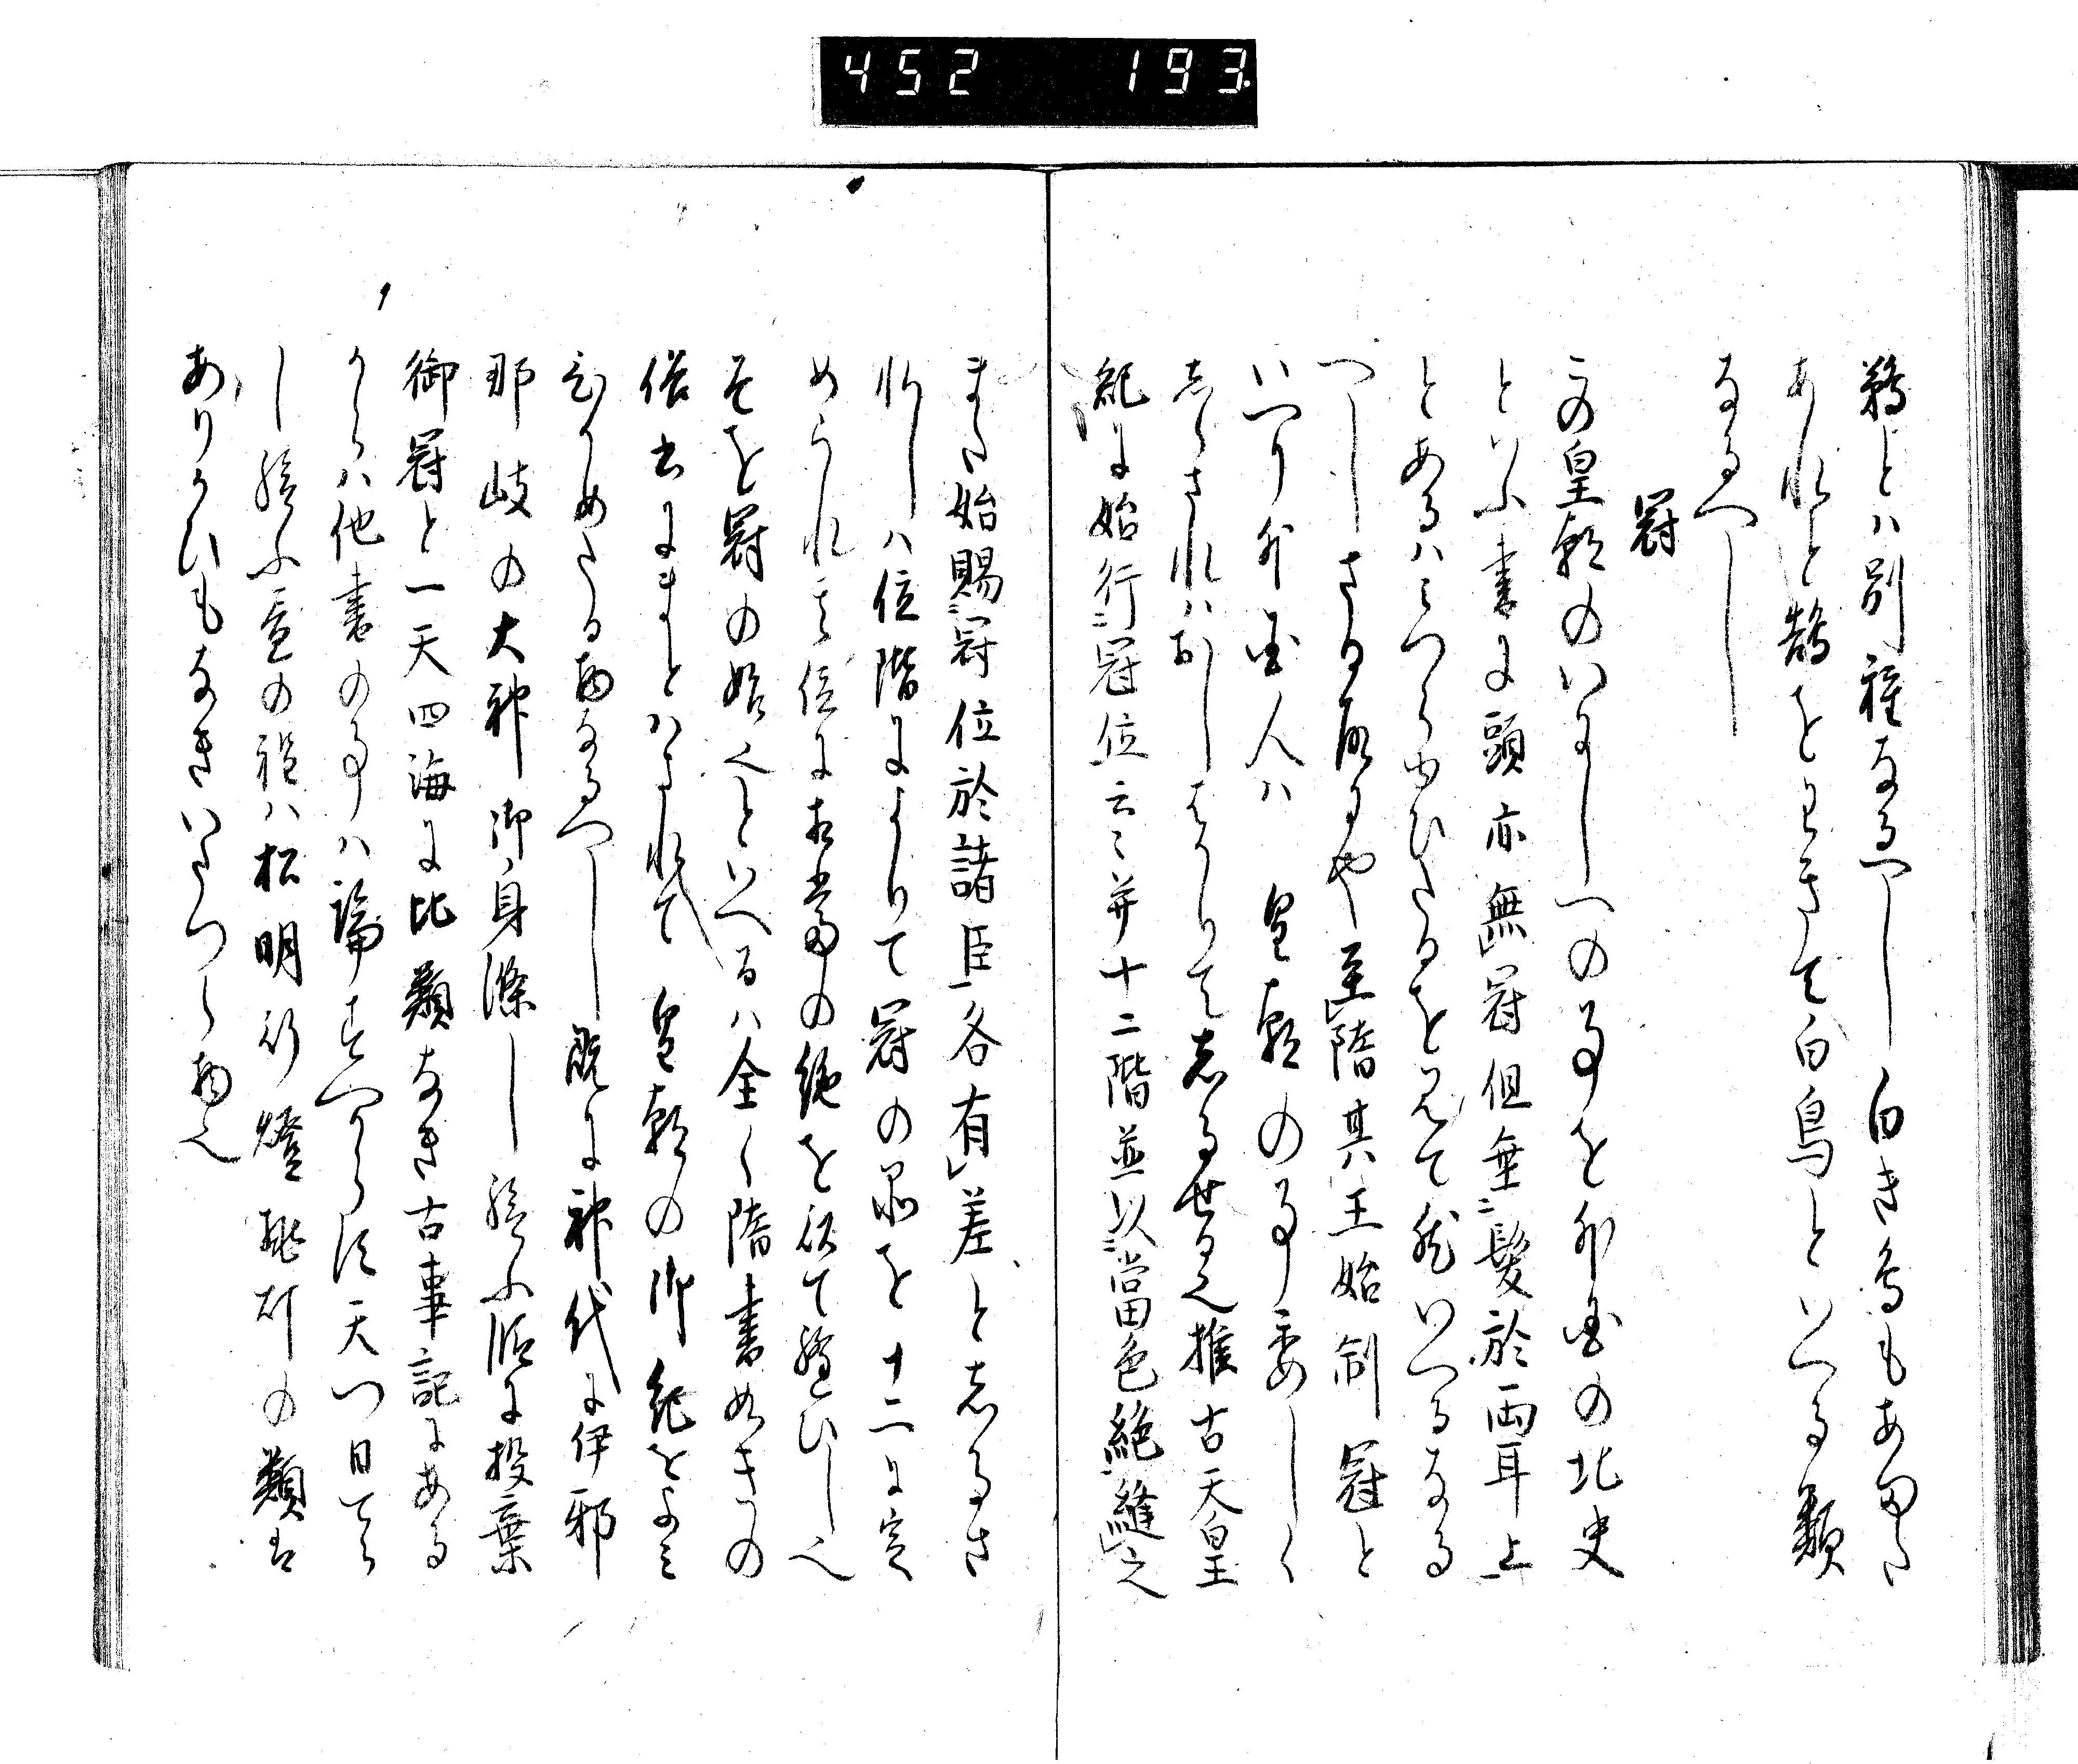 452 193
鵜とは別種なるへし白き鳥もあまた
あれと鵠をときて白鳥といへる類
なるへし
冠
この皇朝のいにしへの事を外国の北史
といふ書に頭亦無冠但垂髪於両耳上
とあるはみつらゆひたるを見て然いへるなる
へしさる故にや至隋其王始制冠と
いへり外国人は皇朝の事委しく
しらされはおしはかりてしるせる也推古天皇
紀に始行冠位云々并十二階並以當色絁縫之
また始賜冠位於諸臣各有差としるさ
れしは位階によりて冠の品を十二に定
められ其位に相当の絁を以て縫ひし也
そを冠の始也といへるは全く隋書めきの
俗士にまとはされて皇朝の御紀をよみ
ひかめたる物なるへし既に神代に伊邪
那岐の大神御身滌し給ふ処に投棄
御冠と一天四海に比類なき古事記にある
からは他書の事は論すへからす天つ日てら
し給ふ昼の程は松明行燈挑灯の類は
ありかひもなきいたつら物也